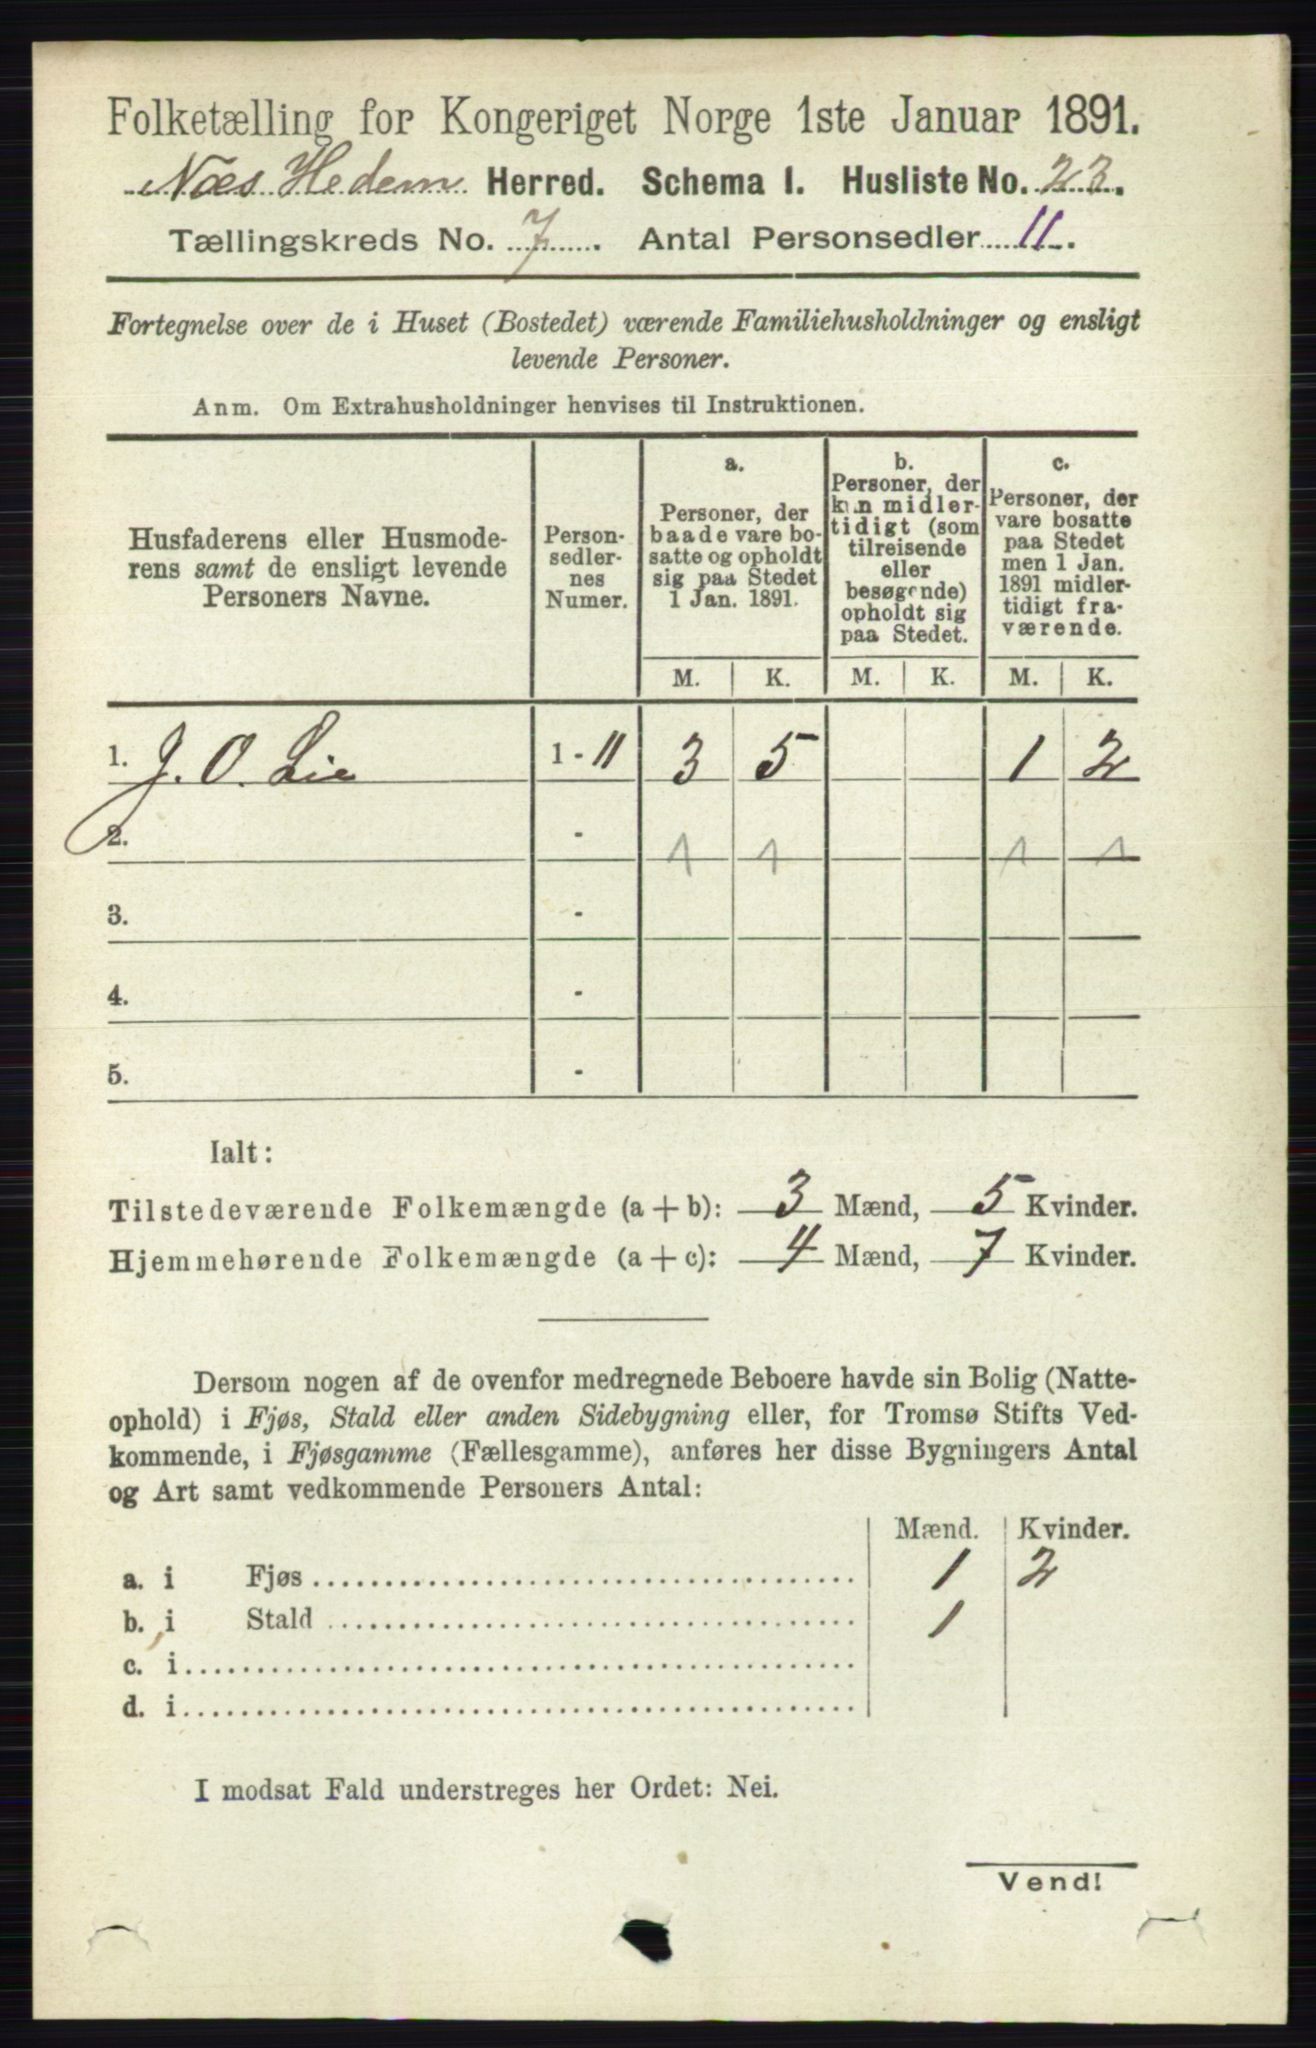 Folketælling for Kongeriget Norge 1ste Januar 1891.
Næs Hedem Herred. Schema I. Husliste No. 23.
Tællingskreds No. 7. Antal Personsedler 11.
Fortegnelse over de i Huset (Bostedet) værende Familiehusholdninger og ensligt
levende Personer.
Anm. Om Extrahusholdninger henvises til Instruktionen.
Husfaderens eller Husmode-
rens samt de ensligt levende
Personers Navne.
Person-
sedler-
nes
Numer.
a.
Personer, der
baade vare bo-
satte og opholdt
sig paa Stedet
1 Jan. 1891.
b.
Personer, der
kun midler-
tidigt (som
tilreisende
eller
besøgende)
opholdt sig
paa Stedet.
c.
Personer, der
vare bosatte
paa Stedet
men 1 Jan.
1891 midler-
tidigt fra-
værende.
M. K. M. K. M. K.
1. J. O. Lie 1 - 11 3 5 1 2
2. - 1 1 1 1
3. -
4. -
5. -
Ialt:
Tilstedeværende Folkemængde (a + b): 3 Mænd, 5 Kvinder.
Hjemmehørende Folkemængde (a + c): 4 Mænd, 7 Kvinder.
Dersom nogen af de ovenfor medregnede Beboere havde sin Bolig (Natte-
ophold) i Fjøs, Stald eller anden Sidebygning eller, for Tromsø Stifts Ved-
kommende, i Fjøsgamme (Fællesgamme), anføres her disse Bygningers Antal
og Art samt vedkommende Personers Antal:
Mænd. Kvinder.
a. i Fjøs 1 2
b. i Stald 1
c. i
d. i
I modsat Fald understreges her Ordet: Nei.
Vend!